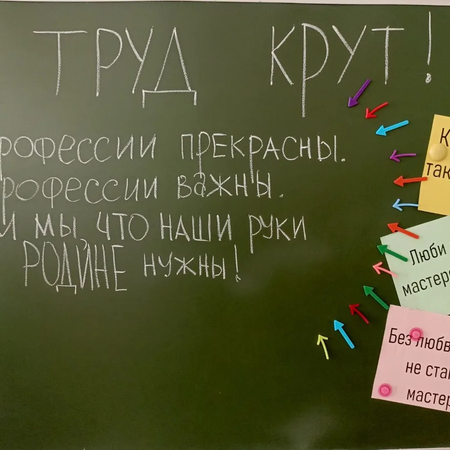 ТРУД КРУТ!
РОФЕССИИ ПРЕКРАСНЫ.
РОФЕССИИ ВАЖНЫ.
И МЫ, ЧТО НАШИ РУКИ
РОДИНЕ НУЖНЫ!
К
так
Люби
мастер
Без любв
не ста
мастер